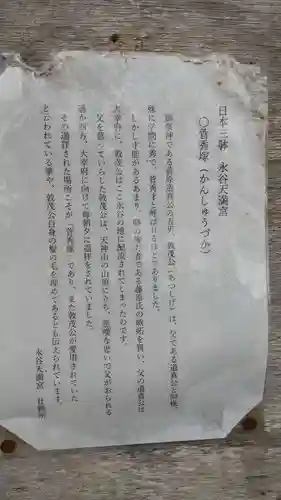 日本三躰　永谷天満宮
〇菅秀塚（かんしゅうづか）
御祭神である菅原道真公の五男、敦茂公（あつしげ）は、父である道真公と同様、
殊に学問に秀で、菅秀才と呼ばれるほどでありました。
しかし才能があるあまり、時の権力者である藤原氏の嫉妬を買い、父の道真公は
大宰府に、敦茂公はここ永谷の地に配流されてしまったのです。
父を慕っていらした敦茂公は、天神山の山頂に立ち、悲嘆な思いで父がおられる
遥か西方、大宰府に向けて毎朝夕に遥拝をされていました。
その遥拝された場所こそが、"菅秀塚"であり、また敦茂公が愛用されていた
と云われている筆や、敦茂公自身の髪の毛を埋めてあるとも伝えられています。
永谷天満宮　社務所